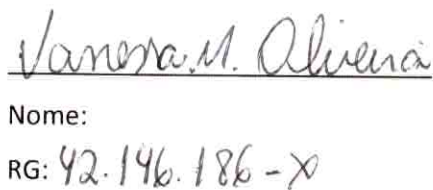 Vanessa.M. Oliveira
Nome:
RG: 42.146.186-X